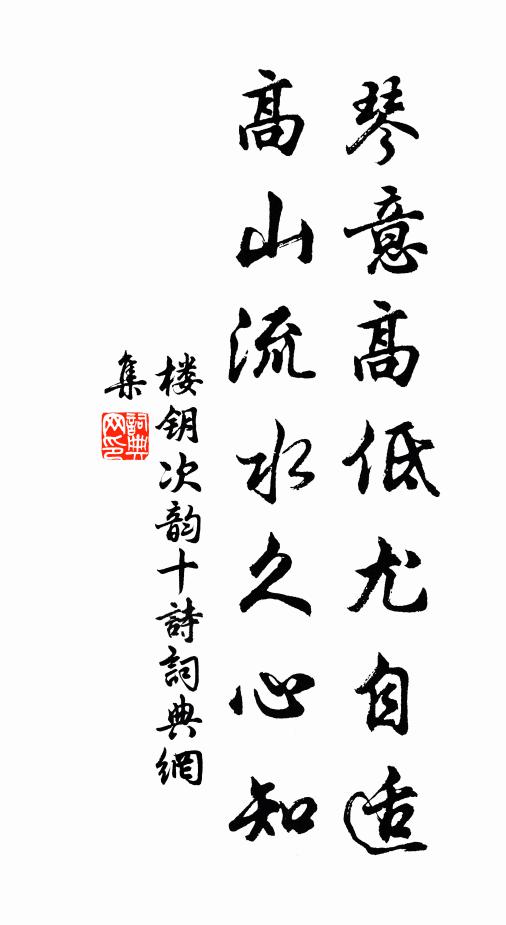 琴意高低尤自适
髙山流水久心知
楼钥次韵十詩詞典網
集
詞典网印